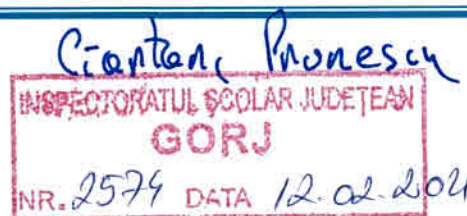 Prunescu
INSPECTORATUL ȘCOLAR JUDEȚEAN
GORJ
NR. 2574 DATA 12.02.202